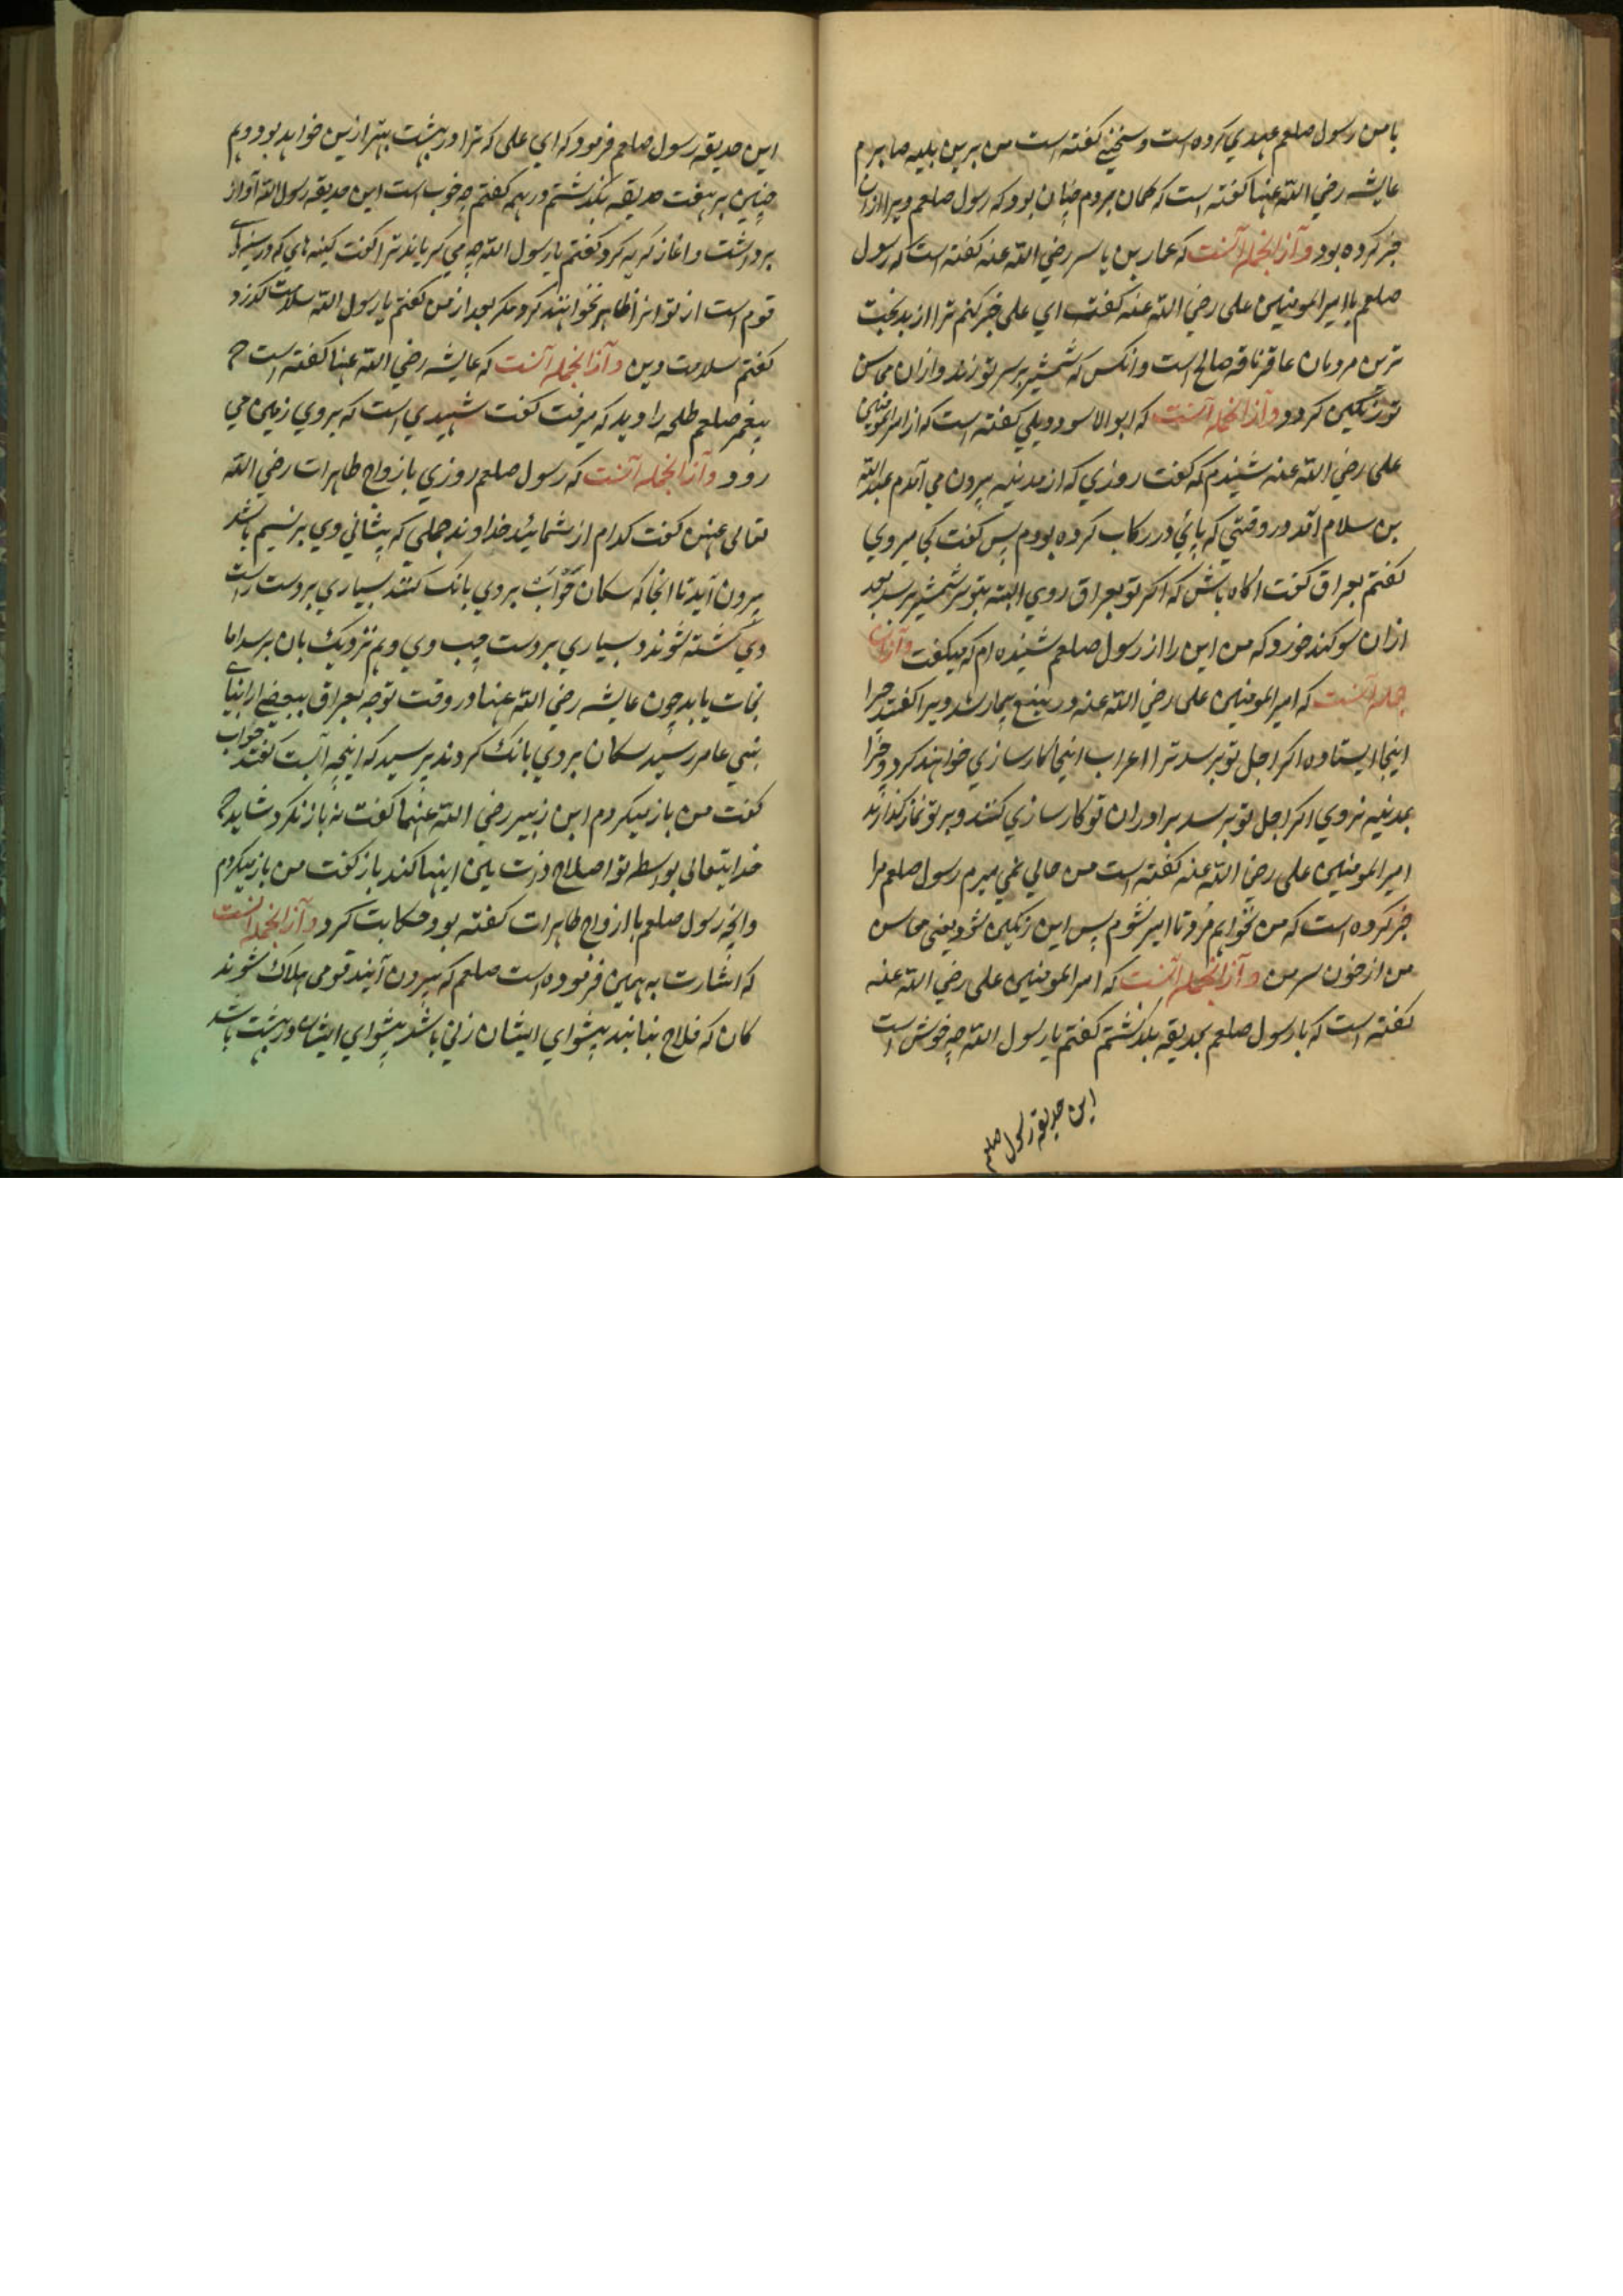 با من رسول صلعم عهدي کرده است و سخني گفته است من برين بليه صابرم
عايشه رضي الله عنها کفته است که کمان بردم چنان بود که رسول صلعم ويرا ازان
خبر کرده بود و آز انجمله آنست که عمار بن ياسر رضي الله عنه کفته است که رسول
صلعم با امير المومنين على رضي الله عنه کفت اي على خبر کنم ترا از بدبخت
ترين مردمان عاقر ناقه صالح است و انکس که شمشير بر سر تو زند و ازان محاسن
تو رنکين کردد و آز انجمله آنست که ابو الاسود دويلي کفته است که از امير المومنين
على رضي الله عنه شنيدم که کفت روزي که از مدينه بيرون مي آمدم عبد الله
بن سلام آمد در وقتي که پاي در رکاب کرده بودم پس کفت کجا ميروي
کفتم بعراق کفت اکاه باش که اکر تو بعراق روي البته بتو سر شمشير برسد بعد
ازان سوکند خورد که من اين را از رسول صلعم شنيده ام که ميکفت و آز ان
جمله آنست که امير المومنين على رضي الله عنه در ينبع بيمار شد ويرا کفتند چرا
اينجا ايستاده اکر اجل تو برسد ترا اعراب اينجا کارسازي خواهند کرد و چرا
بمدينه نروي اکر اجل تو برسد براوران تو کارسازي کنند و بر تو نماز کذارند
امير المومنين على رضي الله عنه کفته است من حالي نمي ميرم رسول صلعم مرا
خبر کرده است که من نخواهم مُرد تا امير نشوم پس اين رنکين شود يعني محاسن
من از خون سر من و آز انجمله آنست که امير المومنين على رضي الله عنه
کفته است که با رسول صلعم بحديقه بکذشتم کفتم يا رسول الله چه خوش است
اين حديقه رسول صلعم
اين حديقه رسول صلعم فرمود که اي على که ترا در بهشت بهتر ازين خواهد بود و هم
چنين بر هفت حديقه بکذشتم و در همه کفتم چه خوب است اين حديقه رسول الله آواز
برداشت و اغاز کريه کرد کفتم يا رسول الله چه مي کرياند ترا کفت کينه هاي که در سينهاي
قوم است از تو انرا ظاهر نخواهند کرد مکر بعد از من کفتم يا رسول الله سلامت کذرد
کفتم سلامت دين و آز انجمله آنست که عايشه رضي الله عنها کفته است که
پيغمبر صلعم طلحه را ديد که ميرفت کفت شهيدي است که بروي زمين مي
رود و آز انجمله آنست که رسول صلعم روزي با ازواج طاهرات رضي الله
تعالى عنهن کفت کدام از شمائيد خداوند جملي که پيشاني وي بر نسيم باشد
بيرون آيد تا انجا که سکان حَوْأَب بروي بانک کنند بسياري بر دست راست
وي کشته شوند و بسياري بر دست چپ وي و هم نزديک بان برسد اما
نجات يابد چون عايشه رضي الله عنها در وقت توجه بعراق ببعضي از ابنياي
بني عامر رسيد سکان بروي بانک کردند پرسيد که اينچه آبست کفتند حواب
کفت من باز ميکردم ابن زبير رضي الله عنهما کفت نه باز نکرد شايد که
خدايتعالى بواسطه تو اصلاح ذات بين اينها کند باز کفت من باز ميکردم
و انچه رسول صلعم با ازواج طاهرات کفته بود حکايت کرد و آز انجمله آنست
که اشارت به همين فرموده است صلعم که بيرون آيند قومي هلاک شوند
کان که فلاح نيابند پيشواي ايشان زني باشد پيشواي ايشان در بهشت باشد